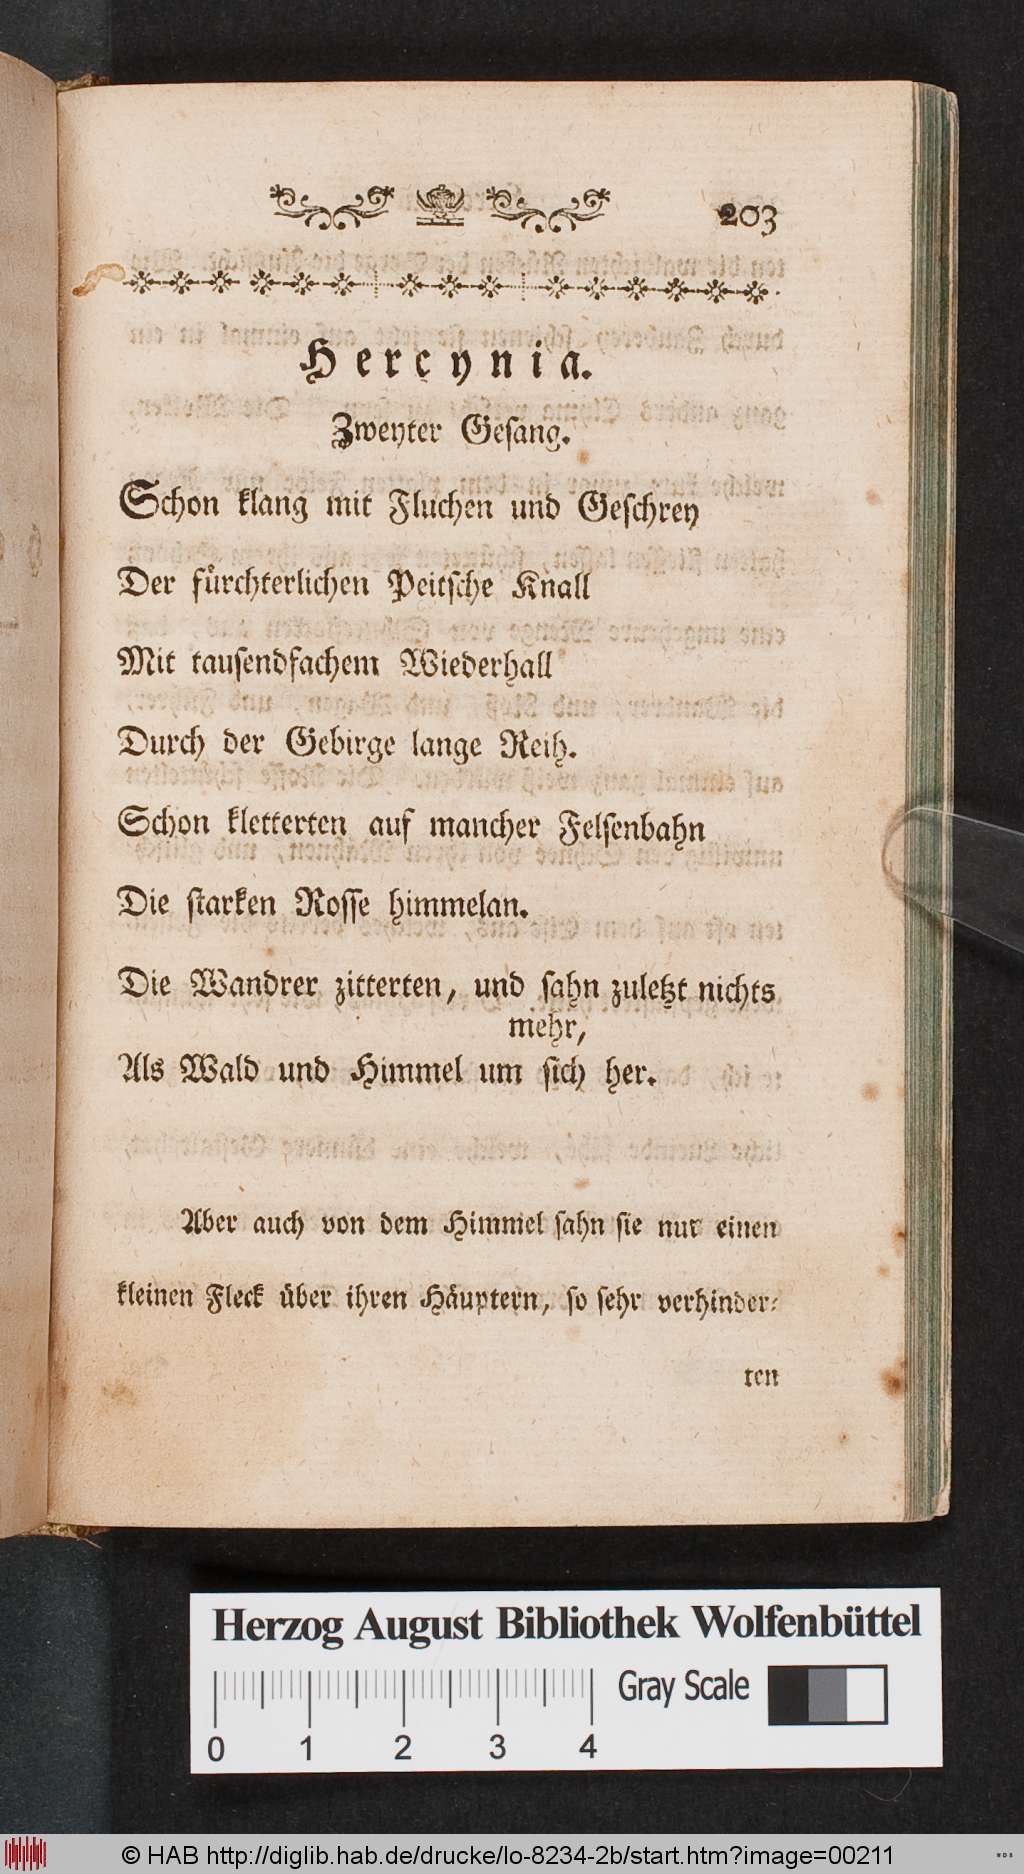 203
Hercynia.
Zweyter Gesang.
Schon klang mit Fluchen und Geschrey
Der fürchterlichen Peitsche Knall
Mit tausendfachem Wiederhall
Durch der Gebirge lange Reih.
Schon kletterten auf mancher Felsenbahn
Die starken Rosse himmelan.
Die Wandrer zitterten, und sahn zuletzt nichts
mehr,
Als Wald und Himmel um sich her.
Aber auch von dem Himmel sahn sie nur einen
kleinen Fleck über ihren Häuptern, so sehr verhinder-
ten
Herzog August Bibliothek Wolfenbüttel
Gray Scale
0 1 2 3 4
© HAB http://diglib.hab.de/drucke/lo-8234-2b/start.htm?image=00211